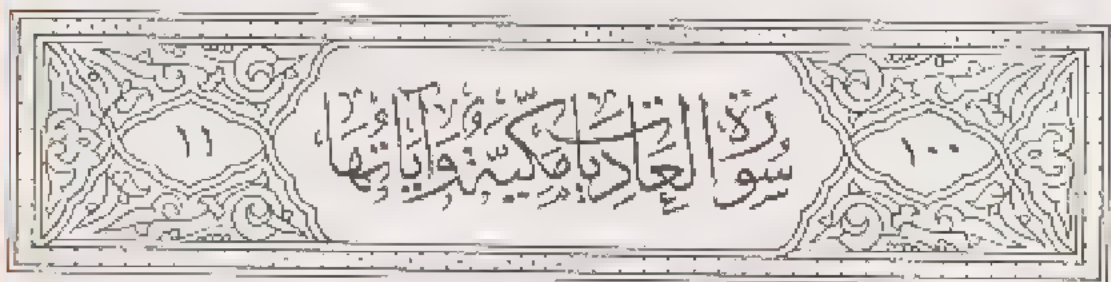 ١٠٠
سُورَةُ العَادِيَاتِ مَكيّة وَآيَاتُهَا
١١